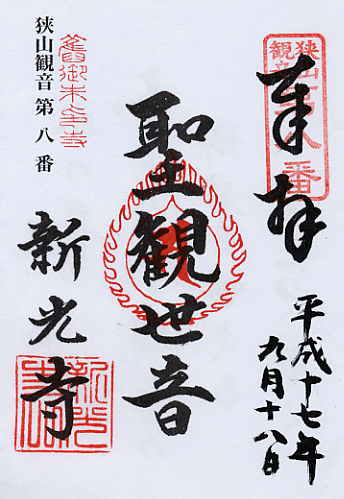 奉拝
狭山
観音
八番
平成十七年
九月十八日
聖観世音
舊御朱印寺
狭山観音第八番
新光寺